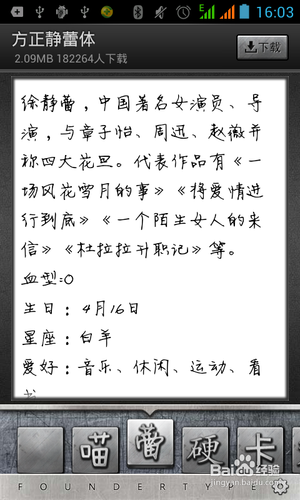 16:03
方正静蕾体
2.09MB 182264人下载
下载
徐静蕾，中国著名女演员、导
演，与章子怡、周迅、赵薇并
称四大花旦。代表作品有《一
场风花雪月的事》《将爱情进
行到底》《一个陌生女人的来
信》《杜拉拉升职记》等。
血型:O
生日：4月16日
星座：白羊
爱好：音乐、休闲、运动、看
书
喵 蕾 硬 卡
FOUNDERTYPE
Baidu经验